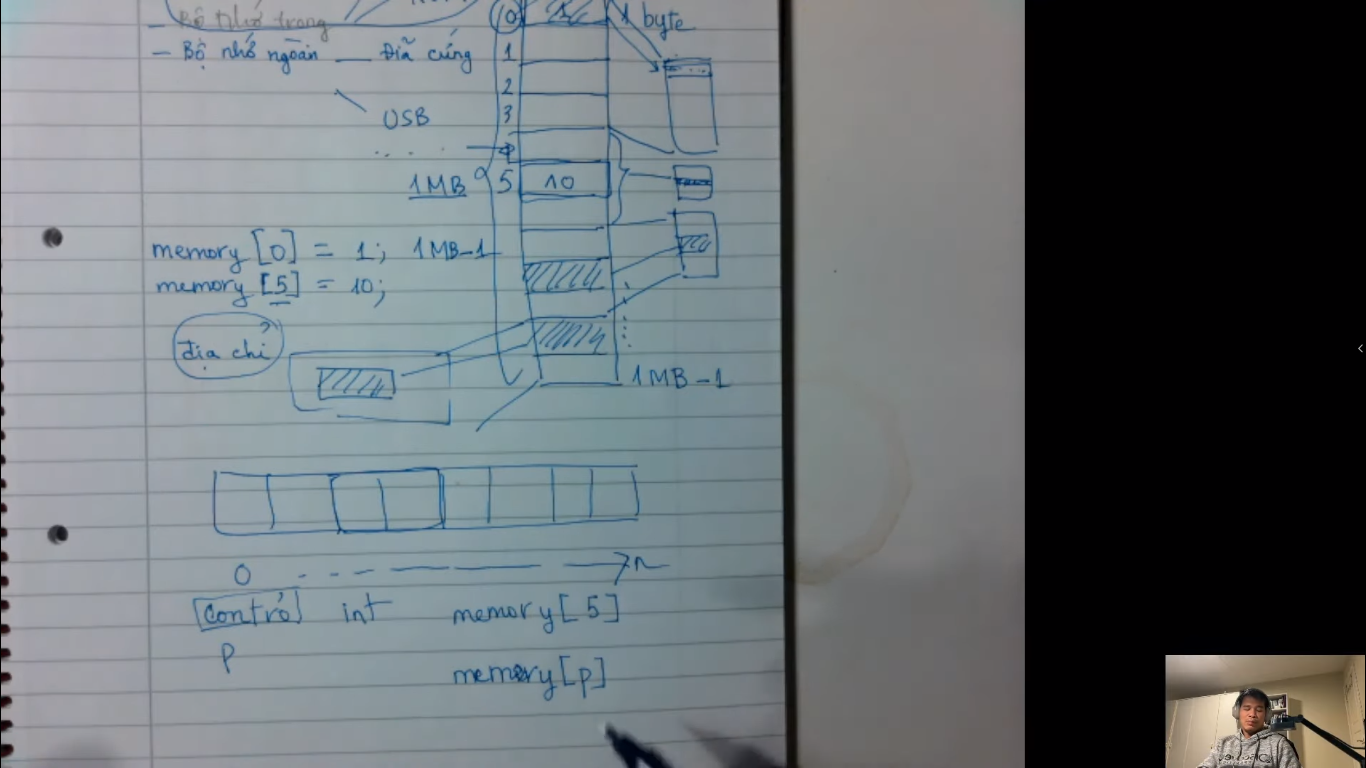 — Bộ nhớ trong
— Bộ nhớ ngoài — Đĩa cứng
USB
. . . .
1MB
0 1 1 byte
1
2
3
4
5 10
memory [0] = 1; 1MB-1
memory [5] = 10;
địa chỉ
1MB-1
0 n
Con trỏ int memory[5]
p
memory[p]